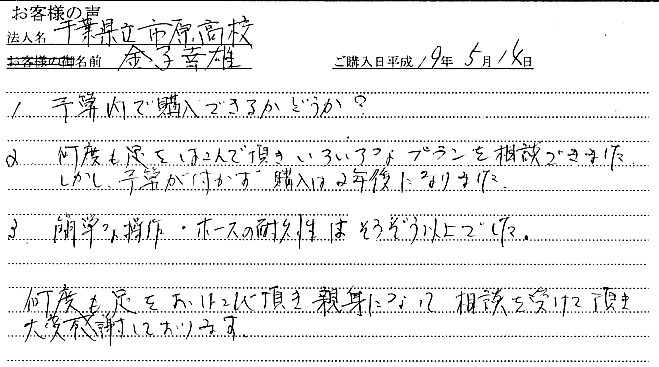 お客様の声
法人名 千葉県立市原高校
お客様の御名前 金子幸雄 ご購入日平成 19年 5月 14日
1 予算内で購入できるかどうか?
2 何度も足をはこんで頂きいろいろなプランを相談できました
しかし、予算が付かず購入は2年後になりました。
3. 簡単な操作・ホースの耐久性はそうぞう以上でした。
何度も足をおはこび頂き親身になって相談を受けて頂き
大変感謝しております。